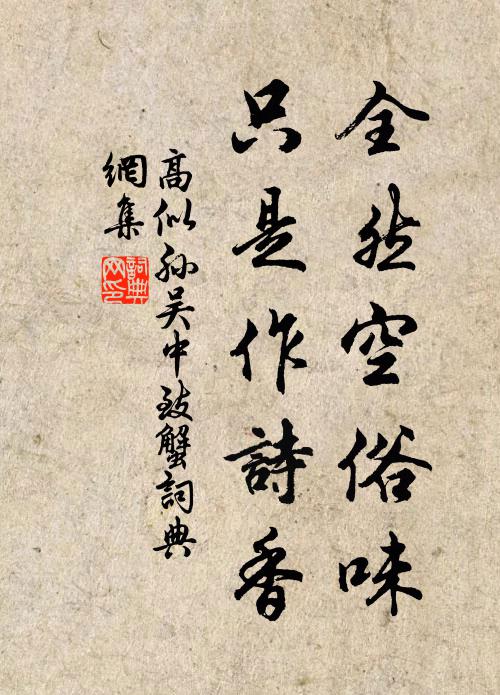 全然空俗味
只是作詩香
高似孫吳中致蟹詞典
網集
詞典網印